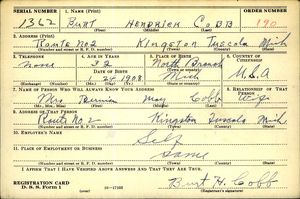 SERIAL NUMBER 1. NAME (Print) ORDER NUMBER
1362 Burt HENDRICK COBB 190
2. ADDRESS (Print)
Route No2 Kingston Tuscola Mich
3. TELEPHONE 4. AGE IN YEARS 5. PLACE OF BIRTH 6. COUNTRY OF CITIZENSHIP
None 32 North Branch
DATE OF BIRTH
1908 Mich U.S.A
7. NAME OF PERSON WHO WILL ALWAYS KNOW YOUR ADDRESS 8. RELATIONSHIP OF THAT PERSON
Mrs May Cobb Wife
9. ADDRESS OF THAT PERSON
Route No2 Kingston Tuscola Mich
10. EMPLOYER'S NAME
Self
11. PLACE OF EMPLOYMENT OR BUSINESS
Same
I AFFIRM THAT I HAVE VERIFIED ABOVE ANSWERS AND THAT THEY ARE TRUE.
REGISTRATION CARD
D. S. S. Form 1 16-17105 Burt H. Cobb